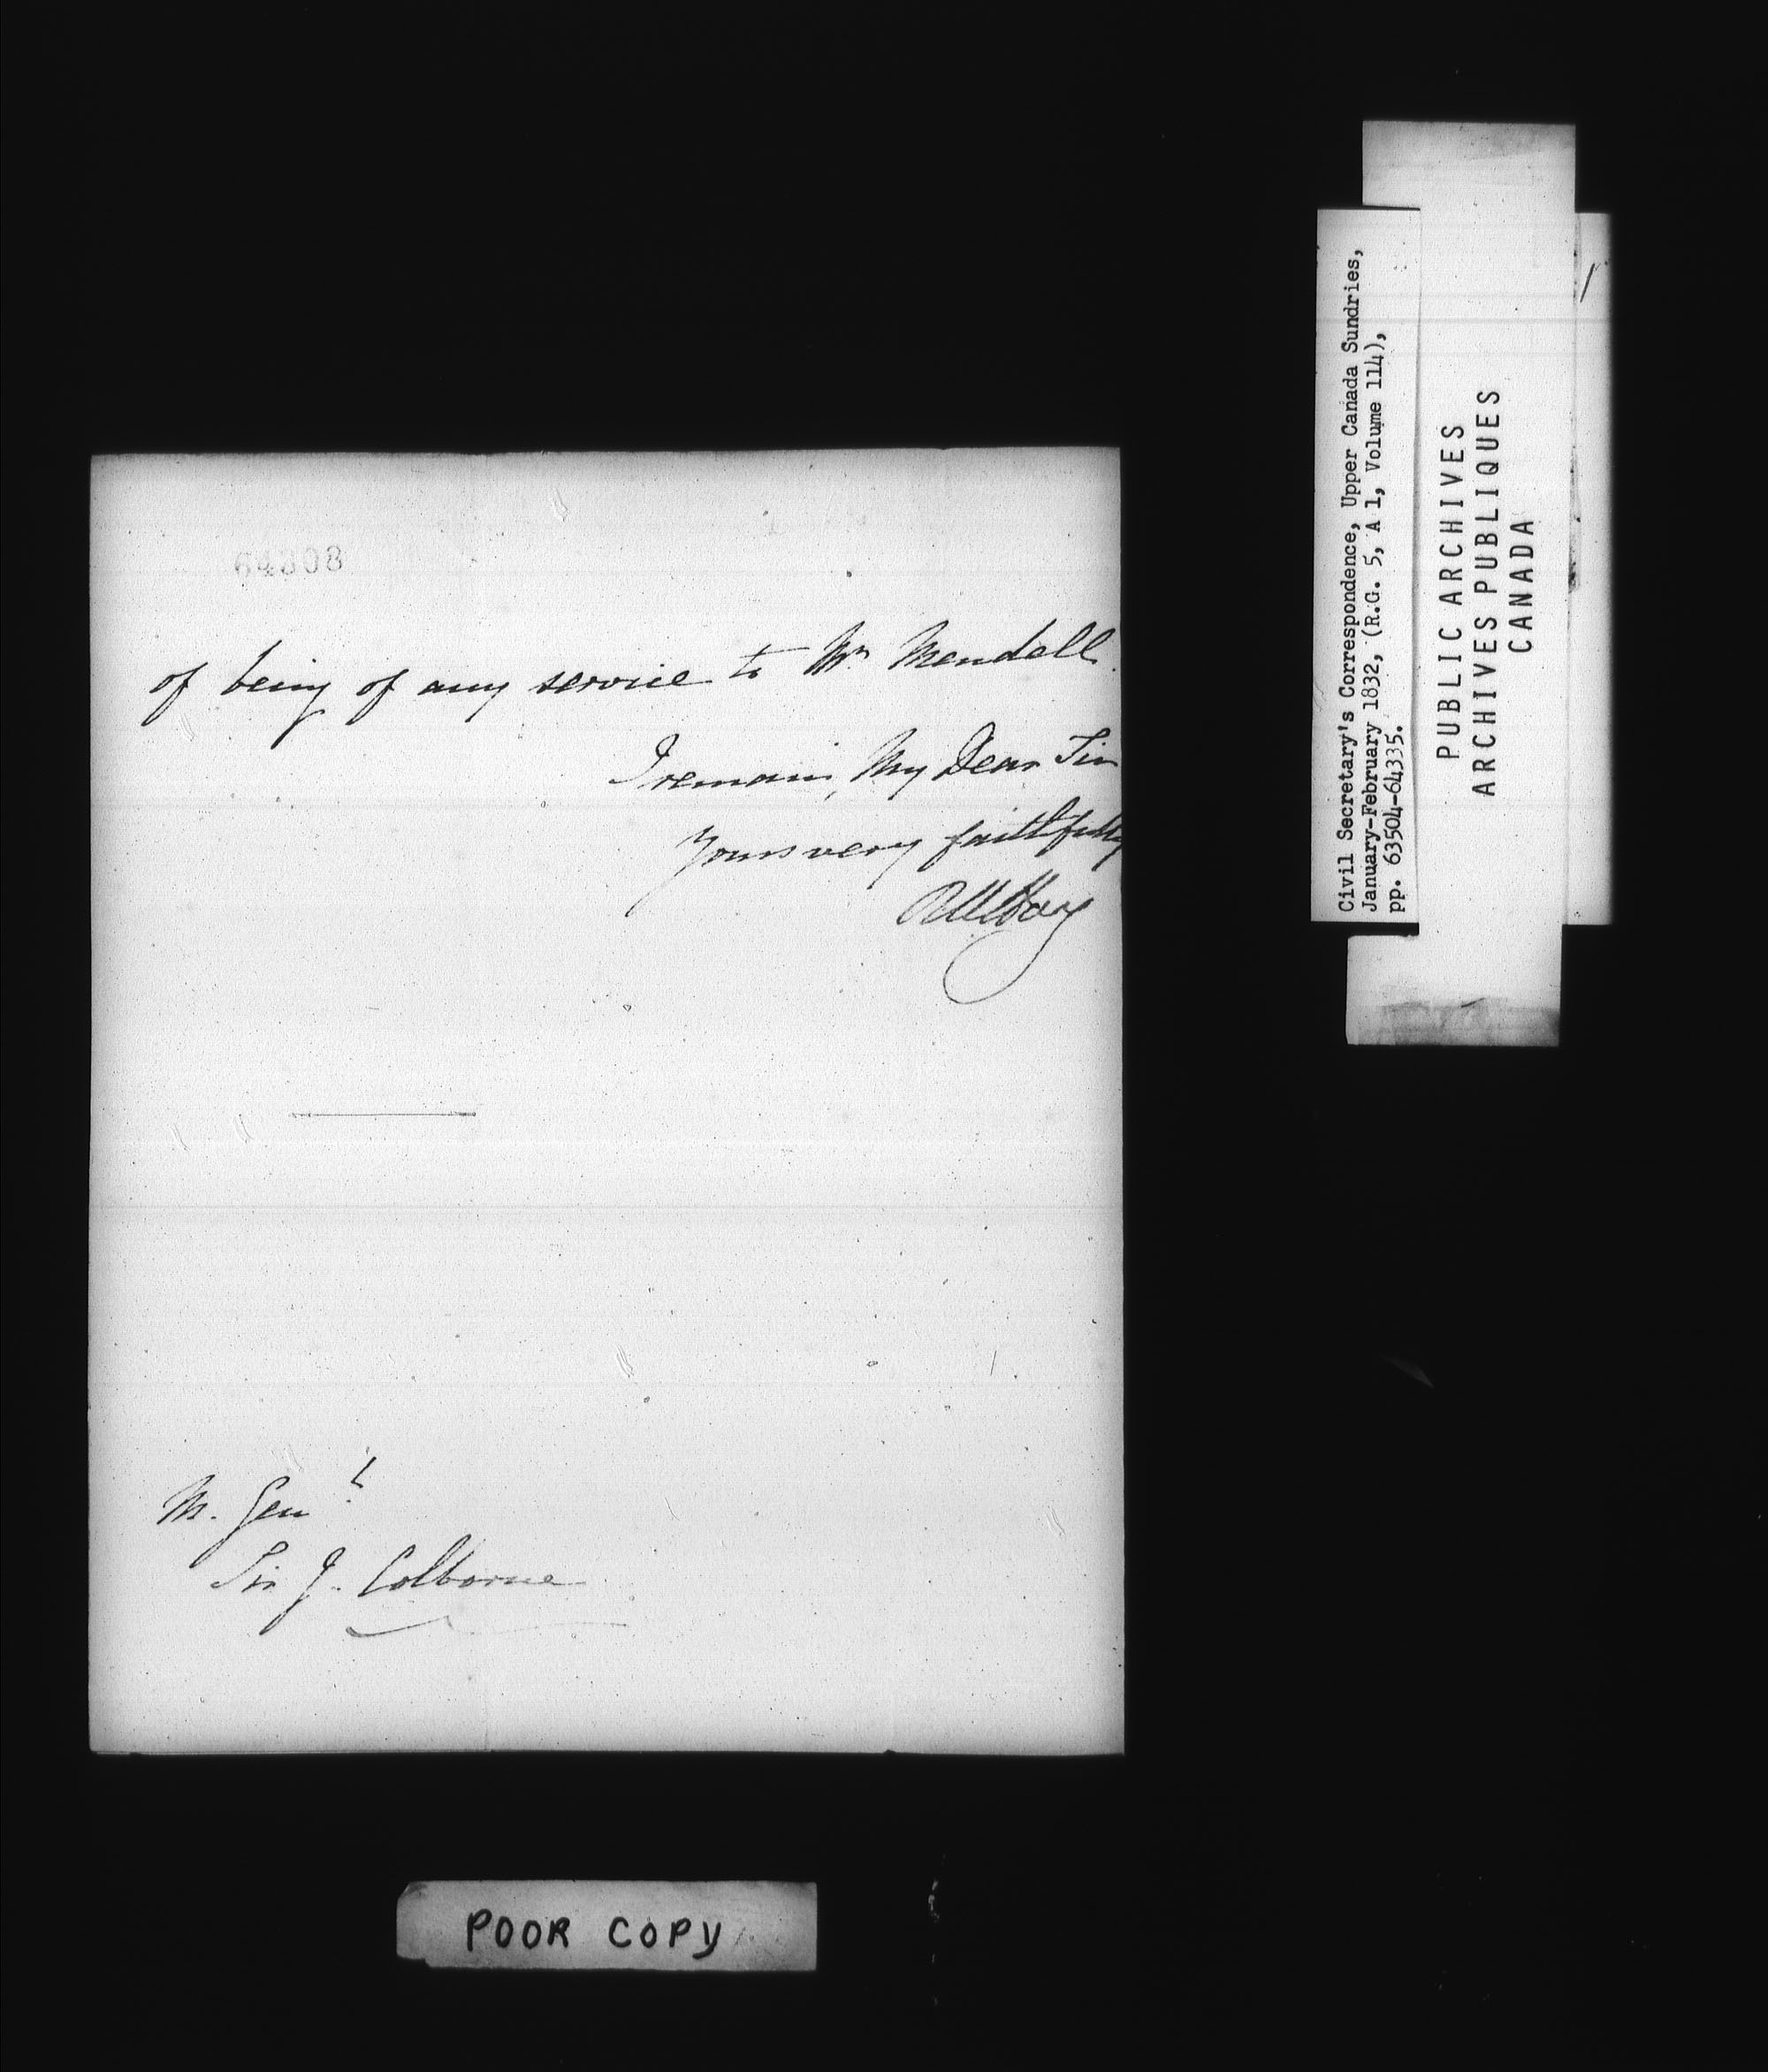 64308
of being of any service to Mr Mendell.
I remain, My Dear Sir
Yours very faithfully
RWHay
M. Genl
Sir J. Colborne
POOR COPY
Civil Secretary's Correspondence, Upper Canada Sundries,
January-February 1832, (R.G. 5, A 1, Volume 114),
pp. 63504-64335.
PUBLIC ARCHIVES
ARCHIVES PUBLIQUES
CANADA